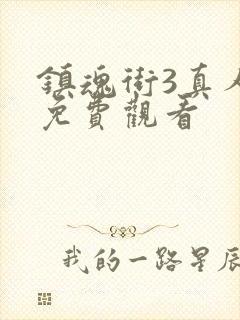 鎮魂街3真人
免費觀看
我的一路星辰